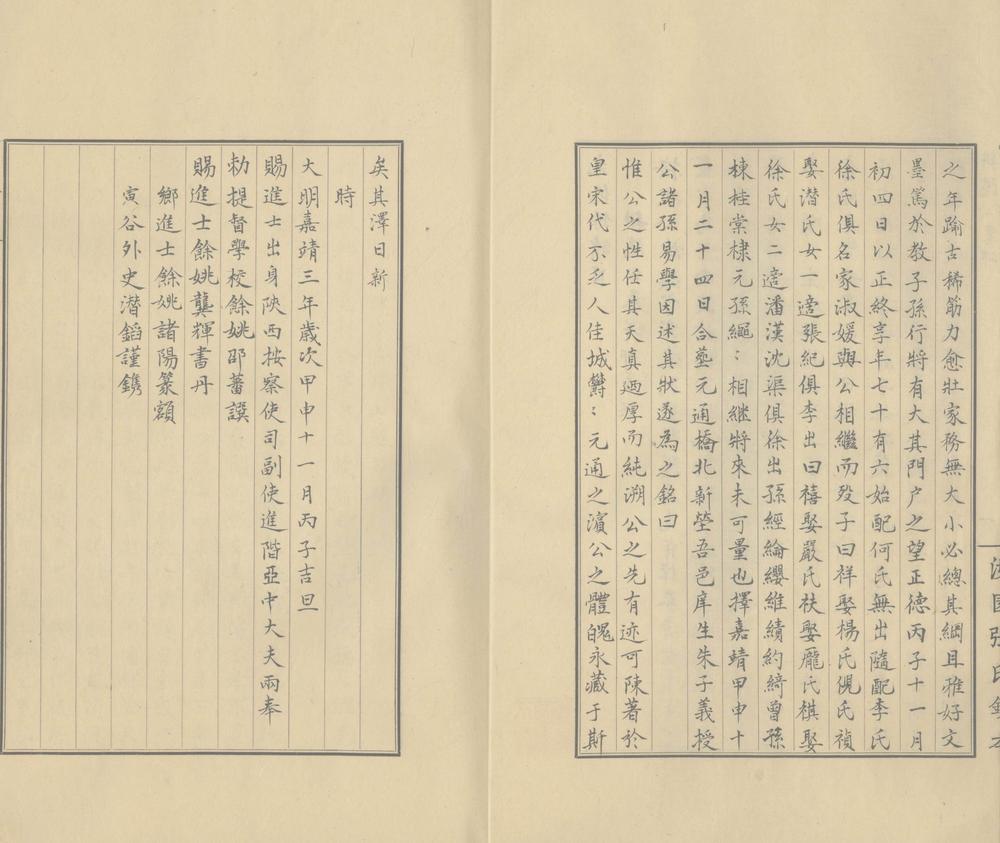 之年踰古稀筋力愈壯家務無大小必總其綱且雅好文
墨篤於教子孫行將有大其門户之望正德丙子十一月
初四日以正終享年七十有六始配何氏無出隨配李氏
徐氏俱名家淑媛與公相繼而殁子曰祥娶楊氏俔氏禎
娶潛氏女一適張紀俱李出曰禧娶嚴氏扶娶龐氏祺娶
徐氏女二適潘漢沈渠俱徐出孫經綸纓維績約綺曾孫
棟桂棠棣元孫繩︰相継將來未可量也擇嘉靖甲申十
一月二十四日合塟元通橋北新塋吾邑庠生朱子義授
公諸孫易學因述其狀遂為之銘曰
惟公之性任其天真廼厚而純溯公之先有迹可陳著於
皇宋代不乏人佳城欝︰元通之濵公之體魄永藏于斯
矣其澤日新
時
大明嘉靖三年歲次甲申十一月丙子吉旦
賜進士出身陝西按察使司副使進階亞中大夫兩奉
勅提督學校餘姚邵蕃譔
賜進士餘姚龔輝書丹
鄉進士餘姚諸陽篆額
寅谷外史潛鎐謹鐫